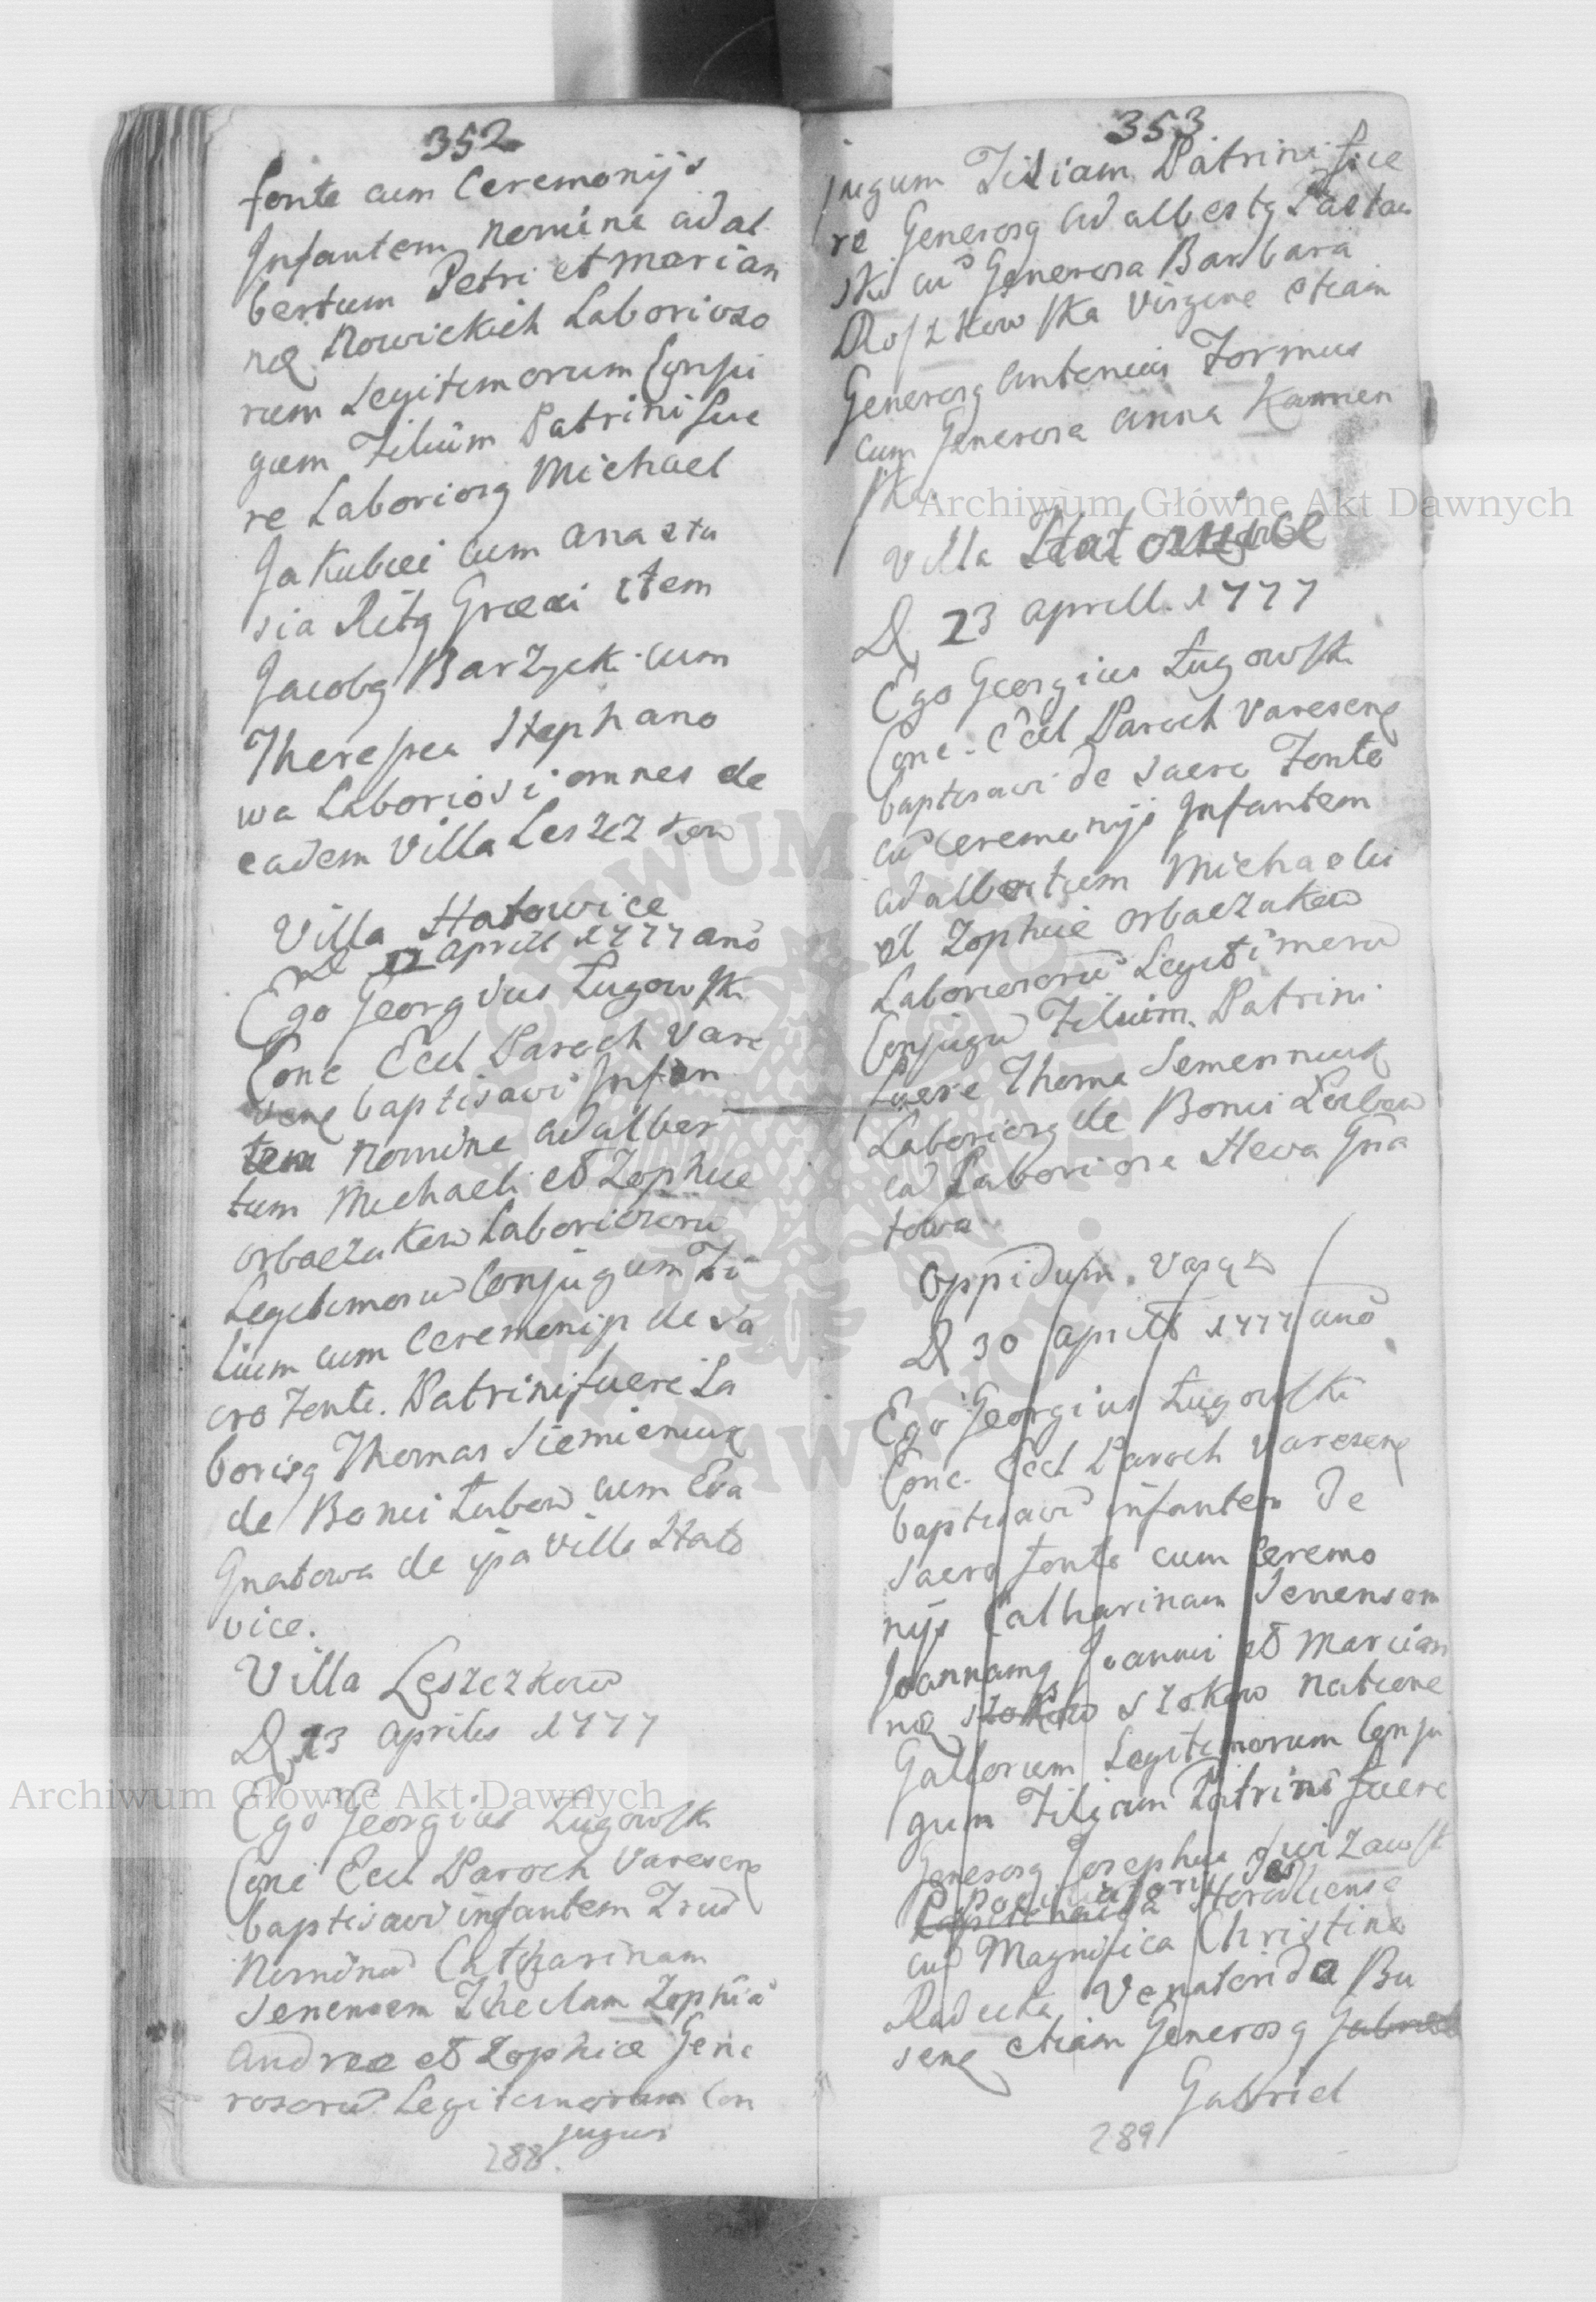 352
fonte cum Ceremonijs
Infantem nomine Adal
bertum Petri et Marian
nę Nowickich Laborioso
rum Legitimorum Conju
gum Filium Patrini fue
re Laboriosq Michael
Jakubiei cum Anasta
sia Ritq Graeci item
Jacobq Barzyck cum
Theressea Stephano
wa Laboriosi omnes de
eadem Villa Leszczkow
Villa Hatowice
D 12 Aprill 1777 anō
Ego Georgius Ługowsk
Conc Eccl Paroch Vare
senę baptisavi Infan
tem Nomine Adalber
tum Michaeli et Zophiae
Orbaczukow Laboriosorū
Legitimorū Conjugum Fi
lium cum Ceremonijs de Sa
cro Fonte. Patrini fuere La
boriosq Thomas Siemieniuk
de Bonis Łubow cum Eva
Gnatowa de ipa Villa Hato
vice.
Villa Leszczkow
D 13 Aprilis 1777
Ego Georgius Ługowsk
Conc Eccl Paroch Varesenę
baptisavi infantem Triū
Nominū Catharinam
Senensem Theclam Zophia
Andreae et Zophiae Gene
rosorū Legitimorum Con
jugum
288.
353
jugum Filiam Patrini fue
re Generosq Adalbertq Pastaw
ski cū Generosa Barbara
Roszkowska Virgine etiam
Generosq Antonius Formus
cum Generosa Anna Kamien
ska.
Villa Hatowice
D 23 Aprill. 1777
Ego Georgius Ługowsk
Conc. Eccl Paroch Varesenę
baptisavi de Sacro Fonte
cū Ceremonijs Infantem
Adalbertum Michaelis
et Zophiae Orbaczukow
Laboriosorū Legitimorū
Conjugū Filium. Patrini
fuere Thoma Semeniuk
Laboriosq de Bonis Łubow
cū Laboriosa Hewa Gna
towa
Oppidum. Varęz
D 30 Aprill 1777 anō
Ego Georgius Ługowski
Conc. Eccl Paroch Varesenę
baptisavi infantem de
Sacro fonte cum Ceremo
nijs Catharinam Senensem
Joannamq Joannis et Marian
nę Szokow Szokow natione
Gallorum Legitimorum Conju
gum Filiam Patrini fuere
Generosq Josephus
Horodlense
cū Magnifica Christina
Radecka Venatorida Bu
senę etiam Generosq Gabriel
Gabriel
289